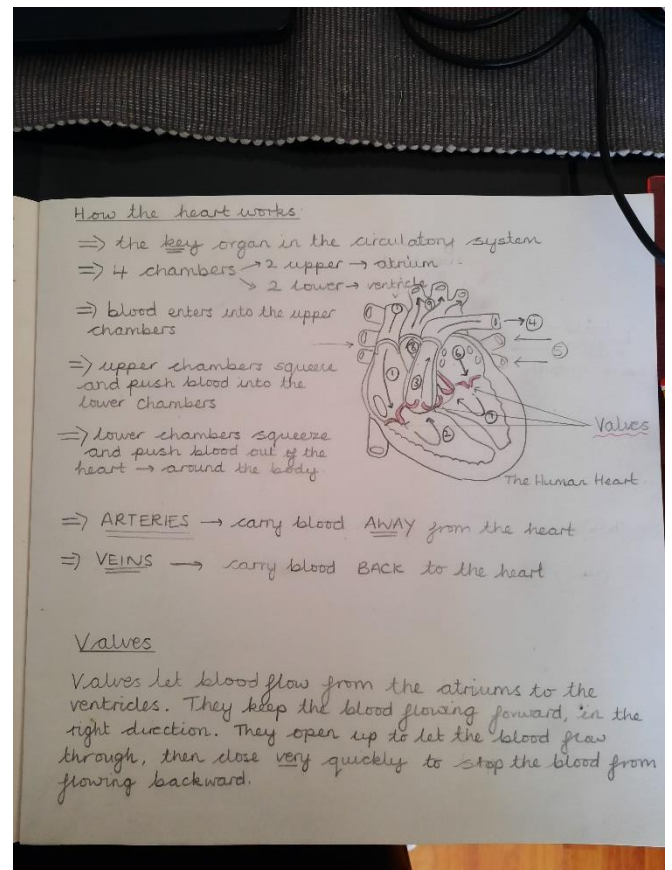 How the heart works
⇒ the key organ in the circulatory system
⇒ 4 chambers → 2 upper → atrium
↘ 2 lower → ventricle
⇒ blood enters into the upper
chambers
⇒ upper chambers squeeze
and push blood into the
lower chambers
⇒ lower chambers squeeze
and push blood out of the
heart → around the body
① ② ③ ④ ⑤ ⑥ ⑦ ⑧
Valves
The Human Heart
⇒ ARTERIES → carry blood AWAY from the heart
⇒ VEINS → carry blood BACK to the heart
Valves
Valves let blood flow from the atriums to the
ventricles. They keep the blood flowing forward, in the
right direction. They open up to let the blood flow
through, then close very quickly to stop the blood from
flowing backward.